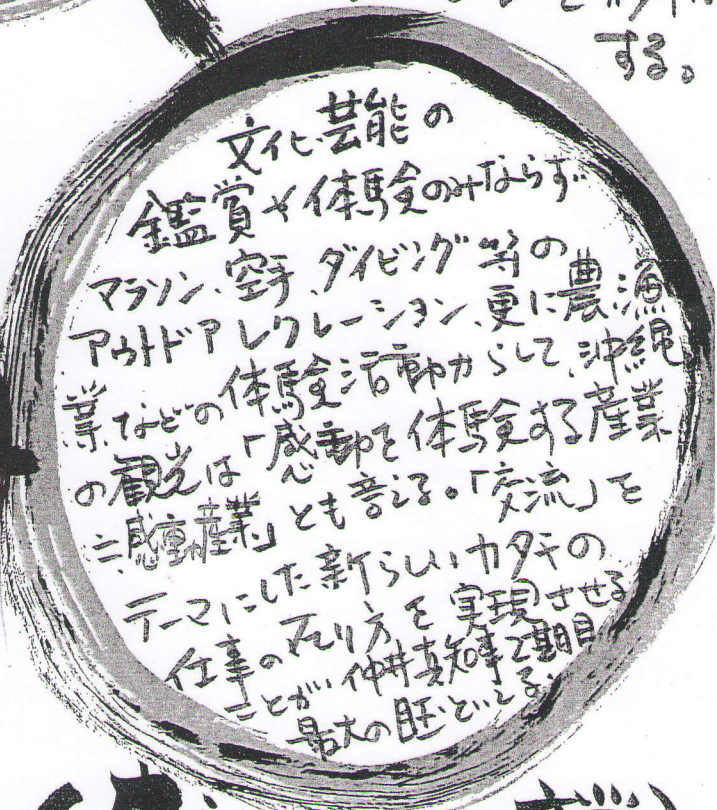 する。
文化芸能の
鑑賞や体験のみならず
マラソン、空手、ダイビング等の
アウトドアレクレーション、更に農漁
業などの体験活動からして、沖縄
の観光は「感動を体験する産業
=感動産業」とも言える。「交流」を
テーマにした新らしいカタチの
仕事の在り方を実現させる
ことが、仲井真知事2期目
最大の目玉といえる。